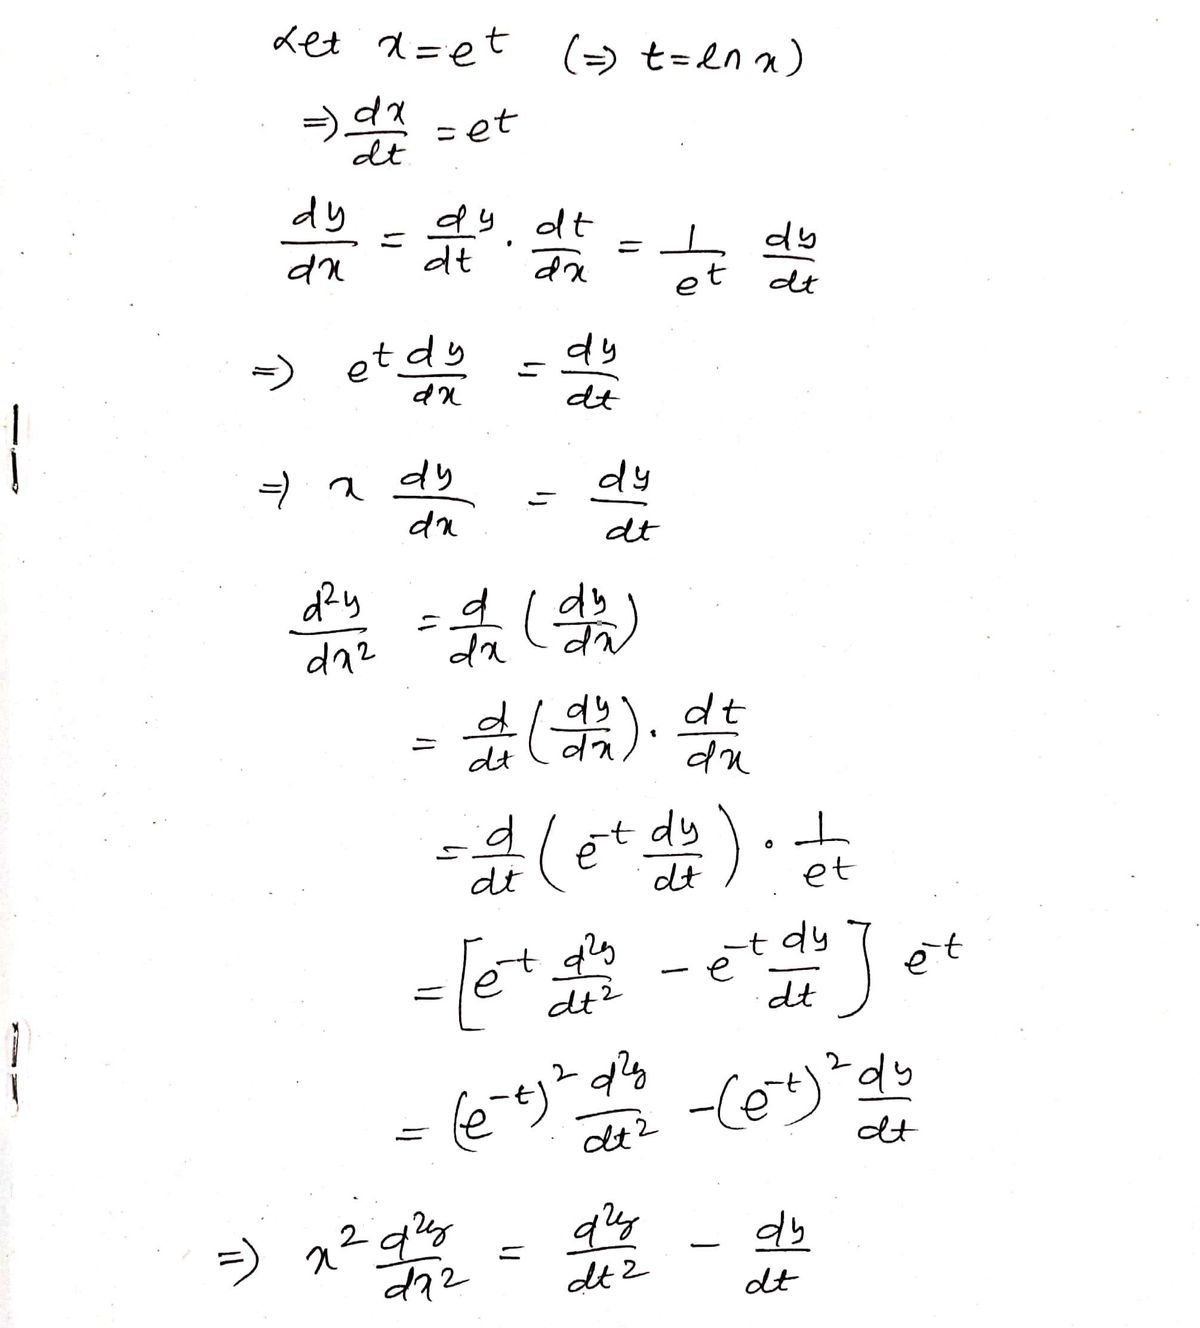 Let x = e^t (⇒ t = ln x)
⇒ dx/dt = e^t
dy/dx = dy/dt · dt/dx = 1/e^t dy/dt
⇒ e^t dy/dx = dy/dt
⇒ x dy/dx = dy/dt
d²y/dx² = d/dx (dy/dx)
= d/dt (dy/dx) · dt/dx
= d/dt (e^-t dy/dt) · 1/e^t
= [e^-t d²y/dt² - e^-t dy/dt] e^-t
= (e^-t)² d²y/dt² - (e^-t)² dy/dt
⇒ x² d²y/dx² = d²y/dt² - dy/dt